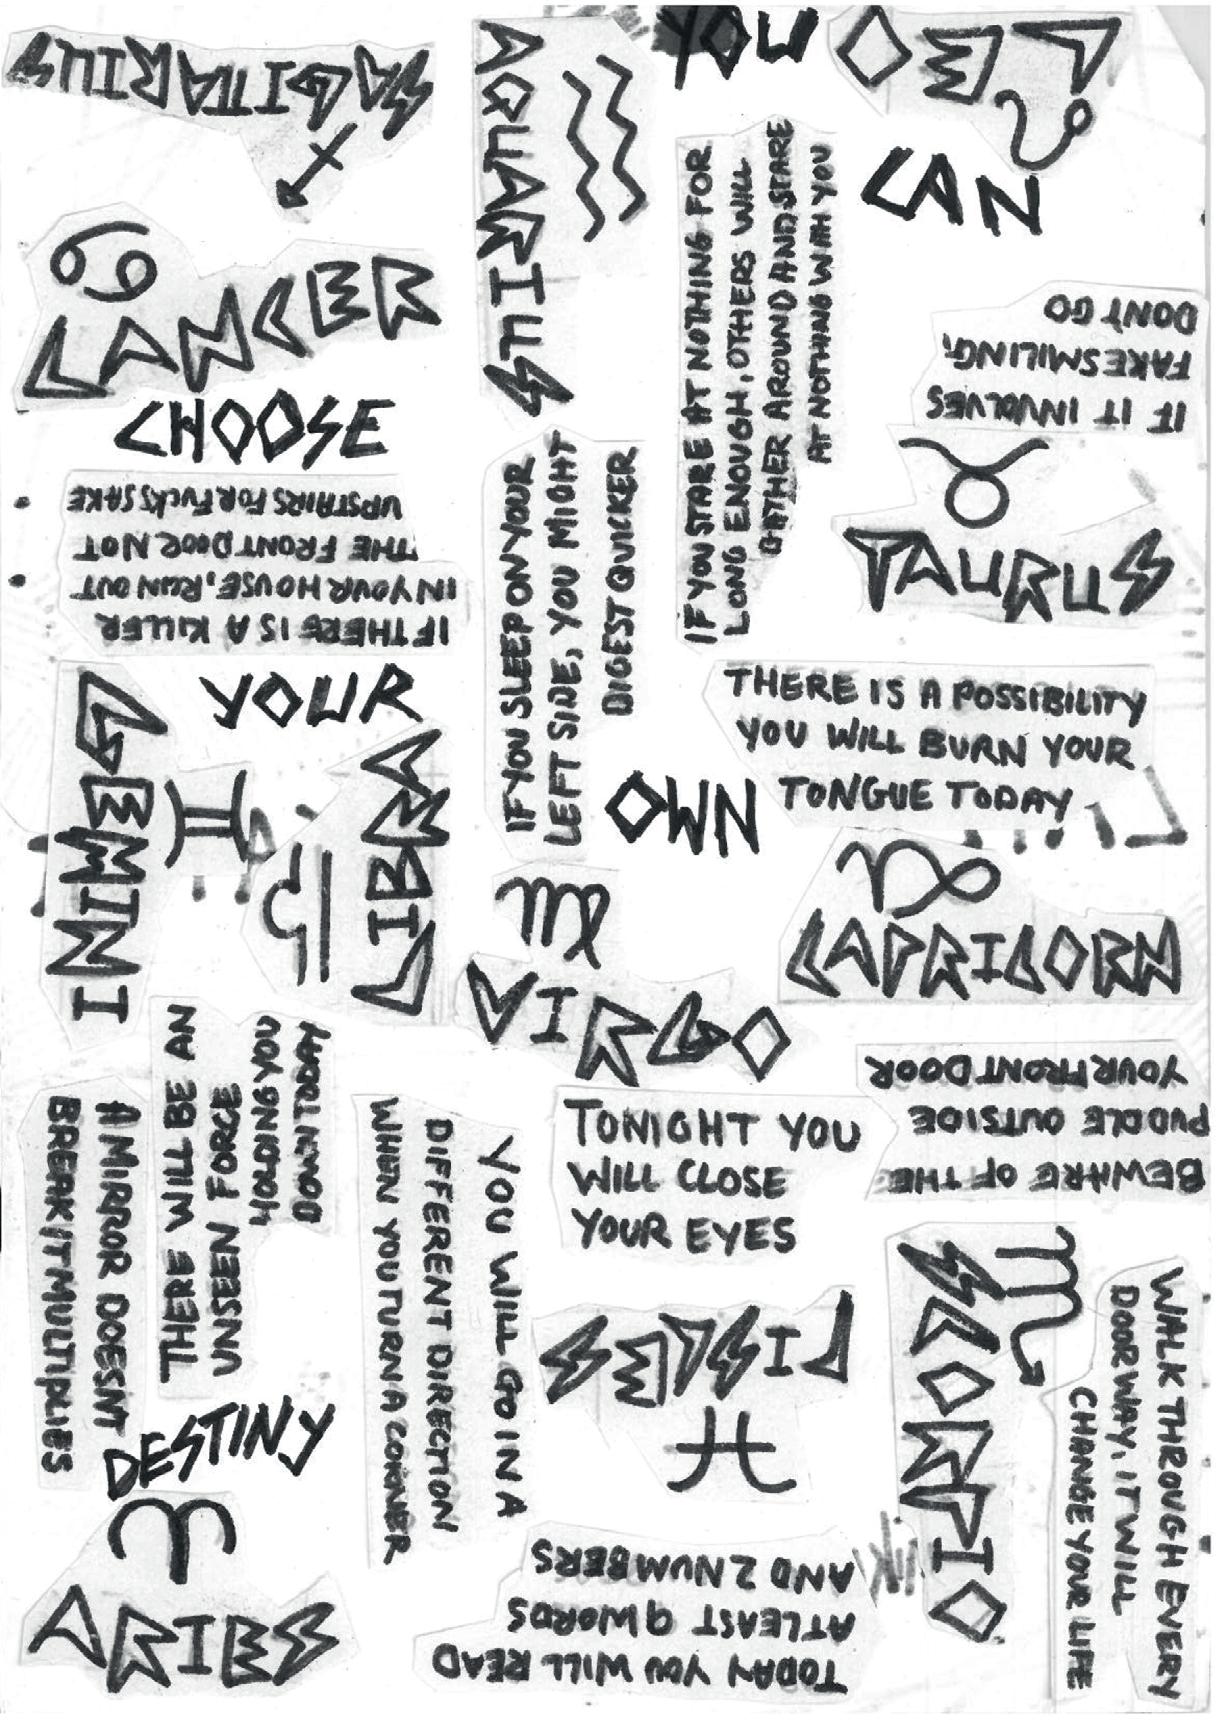 YOU
CAN
CHOOSE
YOUR
OWN
DESTINY
SAGITTARIUS
CANCER
IF THERE IS A KILLER
IN YOUR HOUSE, RUN OUT
THE FRONT DOOR NOT
UPSTAIRS FOR FUCKS SAKE
GEMINI
LIBRA
THERE WILL BE AN
UNSEEN FORCE
HOLDING YOU
DOWN TODAY
A MIRROR DOESNT
BREAK IT MULTIPLIES
ARIES
AQUARIUS
IF YOU SLEEP ON YOUR
LEFT SIDE, YOU MIGHT
DIGEST QUICKER
VIRGO
TONIGHT YOU
WILL CLOSE
YOUR EYES
YOU WILL GO IN A
DIFFERENT DIRECTION
WHEN YOU TURN A CORNER
PISCES
TODAY YOU WILL READ
AT LEAST 9 WORDS
AND 2 NUMBERS
LEO
IF YOU STARE AT NOTHING FOR
LONG ENOUGH, OTHERS WILL
GATHER AROUND AND STARE
AT NOTHING WITH YOU
IF IT INVOLVES
FAKE SMILING,
DONT GO
TAURUS
THERE IS A POSSIBILITY
YOU WILL BURN YOUR
TONGUE TODAY
CAPRICORN
BEWARE OF THE
PUDDLE OUTSIDE
YOUR FRONT DOOR
SCORPIO
WALK THROUGH EVERY
DOORWAY, IT WILL
CHANGE YOUR LIFE